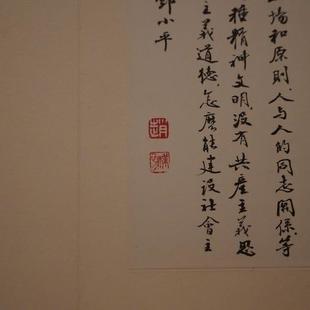 場和原則,人与人的同志関係等
種精神文明,没有共産主義思
主義道德,怎麼能建设社會主
邓小平
趙